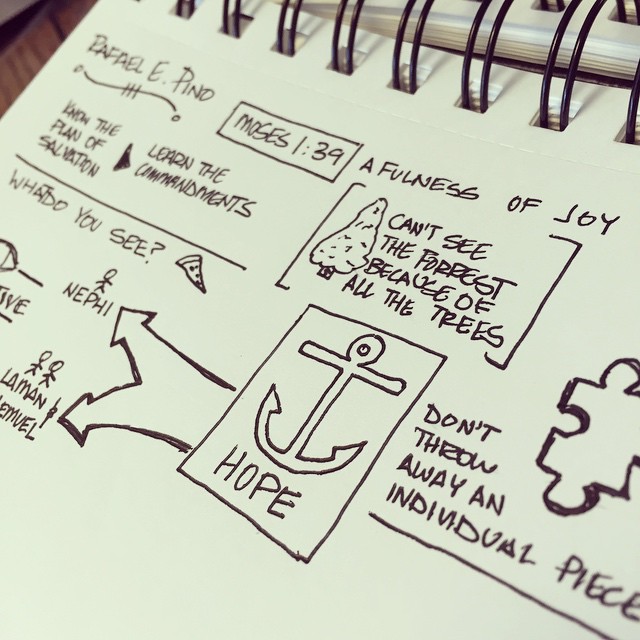 RAFAEL E. PINO
MOSES 1:39
A FULNESS OF JOY
KNOW THE
PLAN OF
SALVATION
LEARN THE
COMMANDMENTS
WHAT DO YOU SEE?
CAN'T SEE
THE FORREST
BECAUSE OF
ALL THE TREES
TIVE
NEPHI
LAMAN &
LEMUEL
HOPE
DON'T
THROW
AWAY AN
INDIVIDUAL PIECE